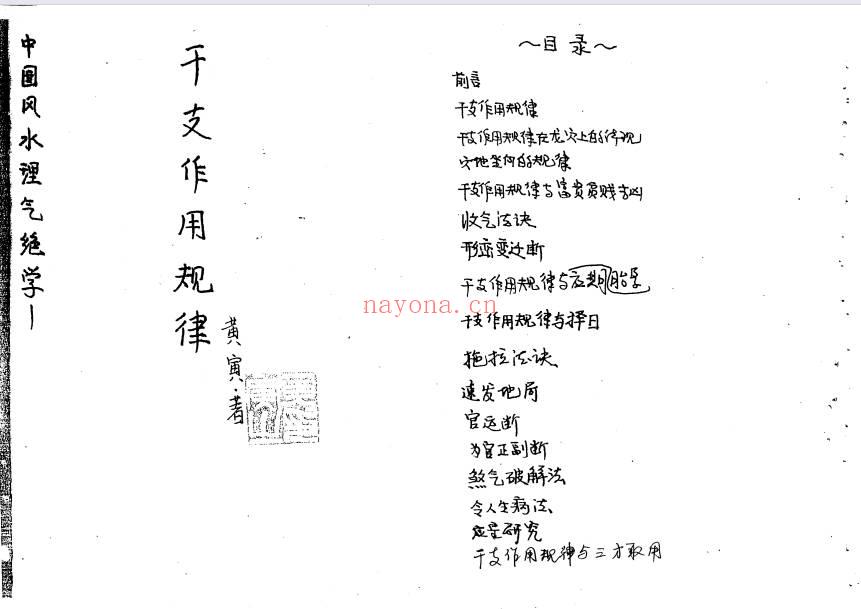 中国风水理气绝学一
干支作用规律
黄寅·著
～目录～
前言
干支作用规律
干支作用规律在龙穴上的体现
穴地坐向的规律
干支作用规律与富贵贫贱吉凶
收气法诀
形峦变迁断
干支作用规律与应期
nayona.cn
干支作用规律与择日
拖拉法诀
速发地局
官运断
为官正副断
煞气破解法
令人生病法
应星研究
干支作用规律与三才取用